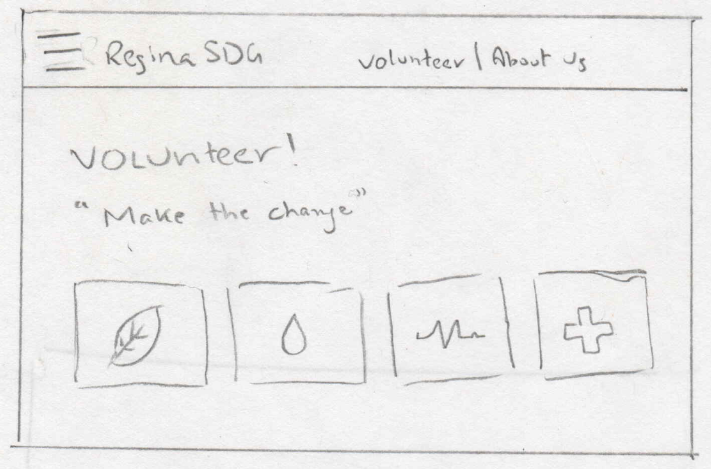 Regina SDG
Volunteer | About Us
Volunteer!
"Make the change"